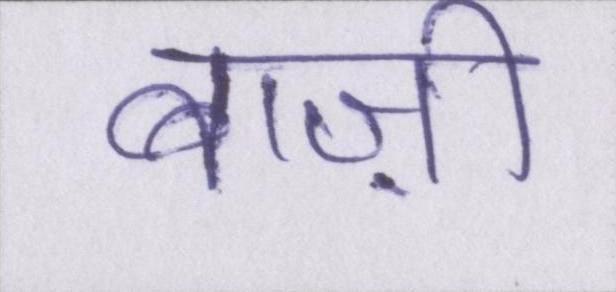 बाज़ी